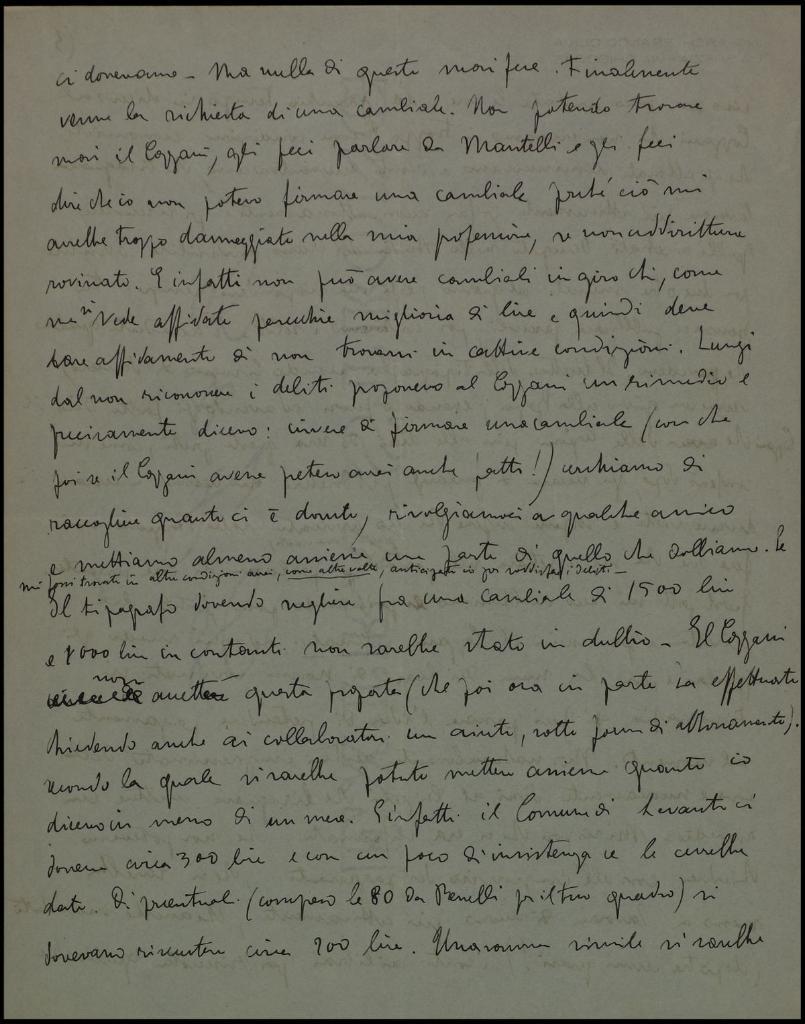 ci dovevano - Ma nulla di questo mai fece. Finalmente
venne la richiesta di una cambiale. Non potendo trovare
mai il Cozzani, gli feci parlare da Mantelli e gli feci
dire che io non potevo firmare una cambiale perché ciò mi
avrebbe troppo danneggiato nella mia professione, se non addirittura
rovinato. E infatti non può avere cambiali in giro chi, come
me si vede affidate parecchie migliaia di lire e quindi deve
dare affidamento di non trovarsi in cattive condizioni. Lungi
dal non riconoscere i debiti proponevo al Cozzani un rimedio e
precisamente dicevo: invece di firmare una cambiale (con che
poi se il Cozzani avesse potevo anche atti!) cerchiamo di
raccogliere quanto ci è dovuto, rivolgiamoci a qualche amico
e mettiamo almeno assieme una parte di quello che dobbiamo. Se
mi fossi trovato in altre condizioni avrei, come altre volte, anticipato io poi soddisfati i debiti -
Il tipografo dovendo scegliere fra una cambiale di 1500 lire
e 1000 lire in contanti non sarebbe stato in dubbio - Il Cozzani
non questa proposta (che poi ora in parte ha effettuata
chiedendo anche ai collaboratori un aiuto, sotto forma di abbonamento).
secondo la quale si sarebbe potuto mettere assieme quanto io
dicevo in meno di un mese. E infatti il Comune di Levanto ci
doveva circa 300 lire e con un poco di insistenza ce le avrebbe
date. Di (compreso le 80 da Benelli per il tuo quadro) si
dovevano riscuotere circa 200 lire. Una somma simile si sarebbe